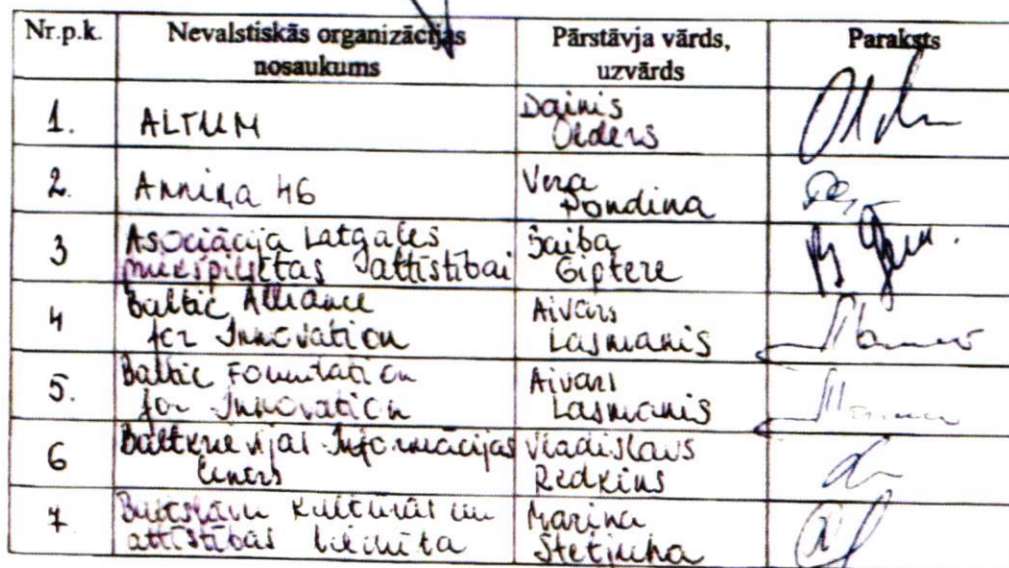 Nr.p.k. Nevalstiskās organizācijas nosaukums Pārstāvja vārds, uzvārds Paraksts
1. ALTUM Dainis Olders
2. Anniņa 46 Vera Pondina
3 Asociācija Latgales priekšpilsētas attīstībai Baiba Giptere
4 Baltic Alliance for Innovation Aivars Lasmanis
5. Baltic Foundation for Innovation Aivars Lasmanis
6 Baltkrievijas Informācijas Centrs Vladislavs Redkins
7. Kultūras un attīstības biedrība Marina